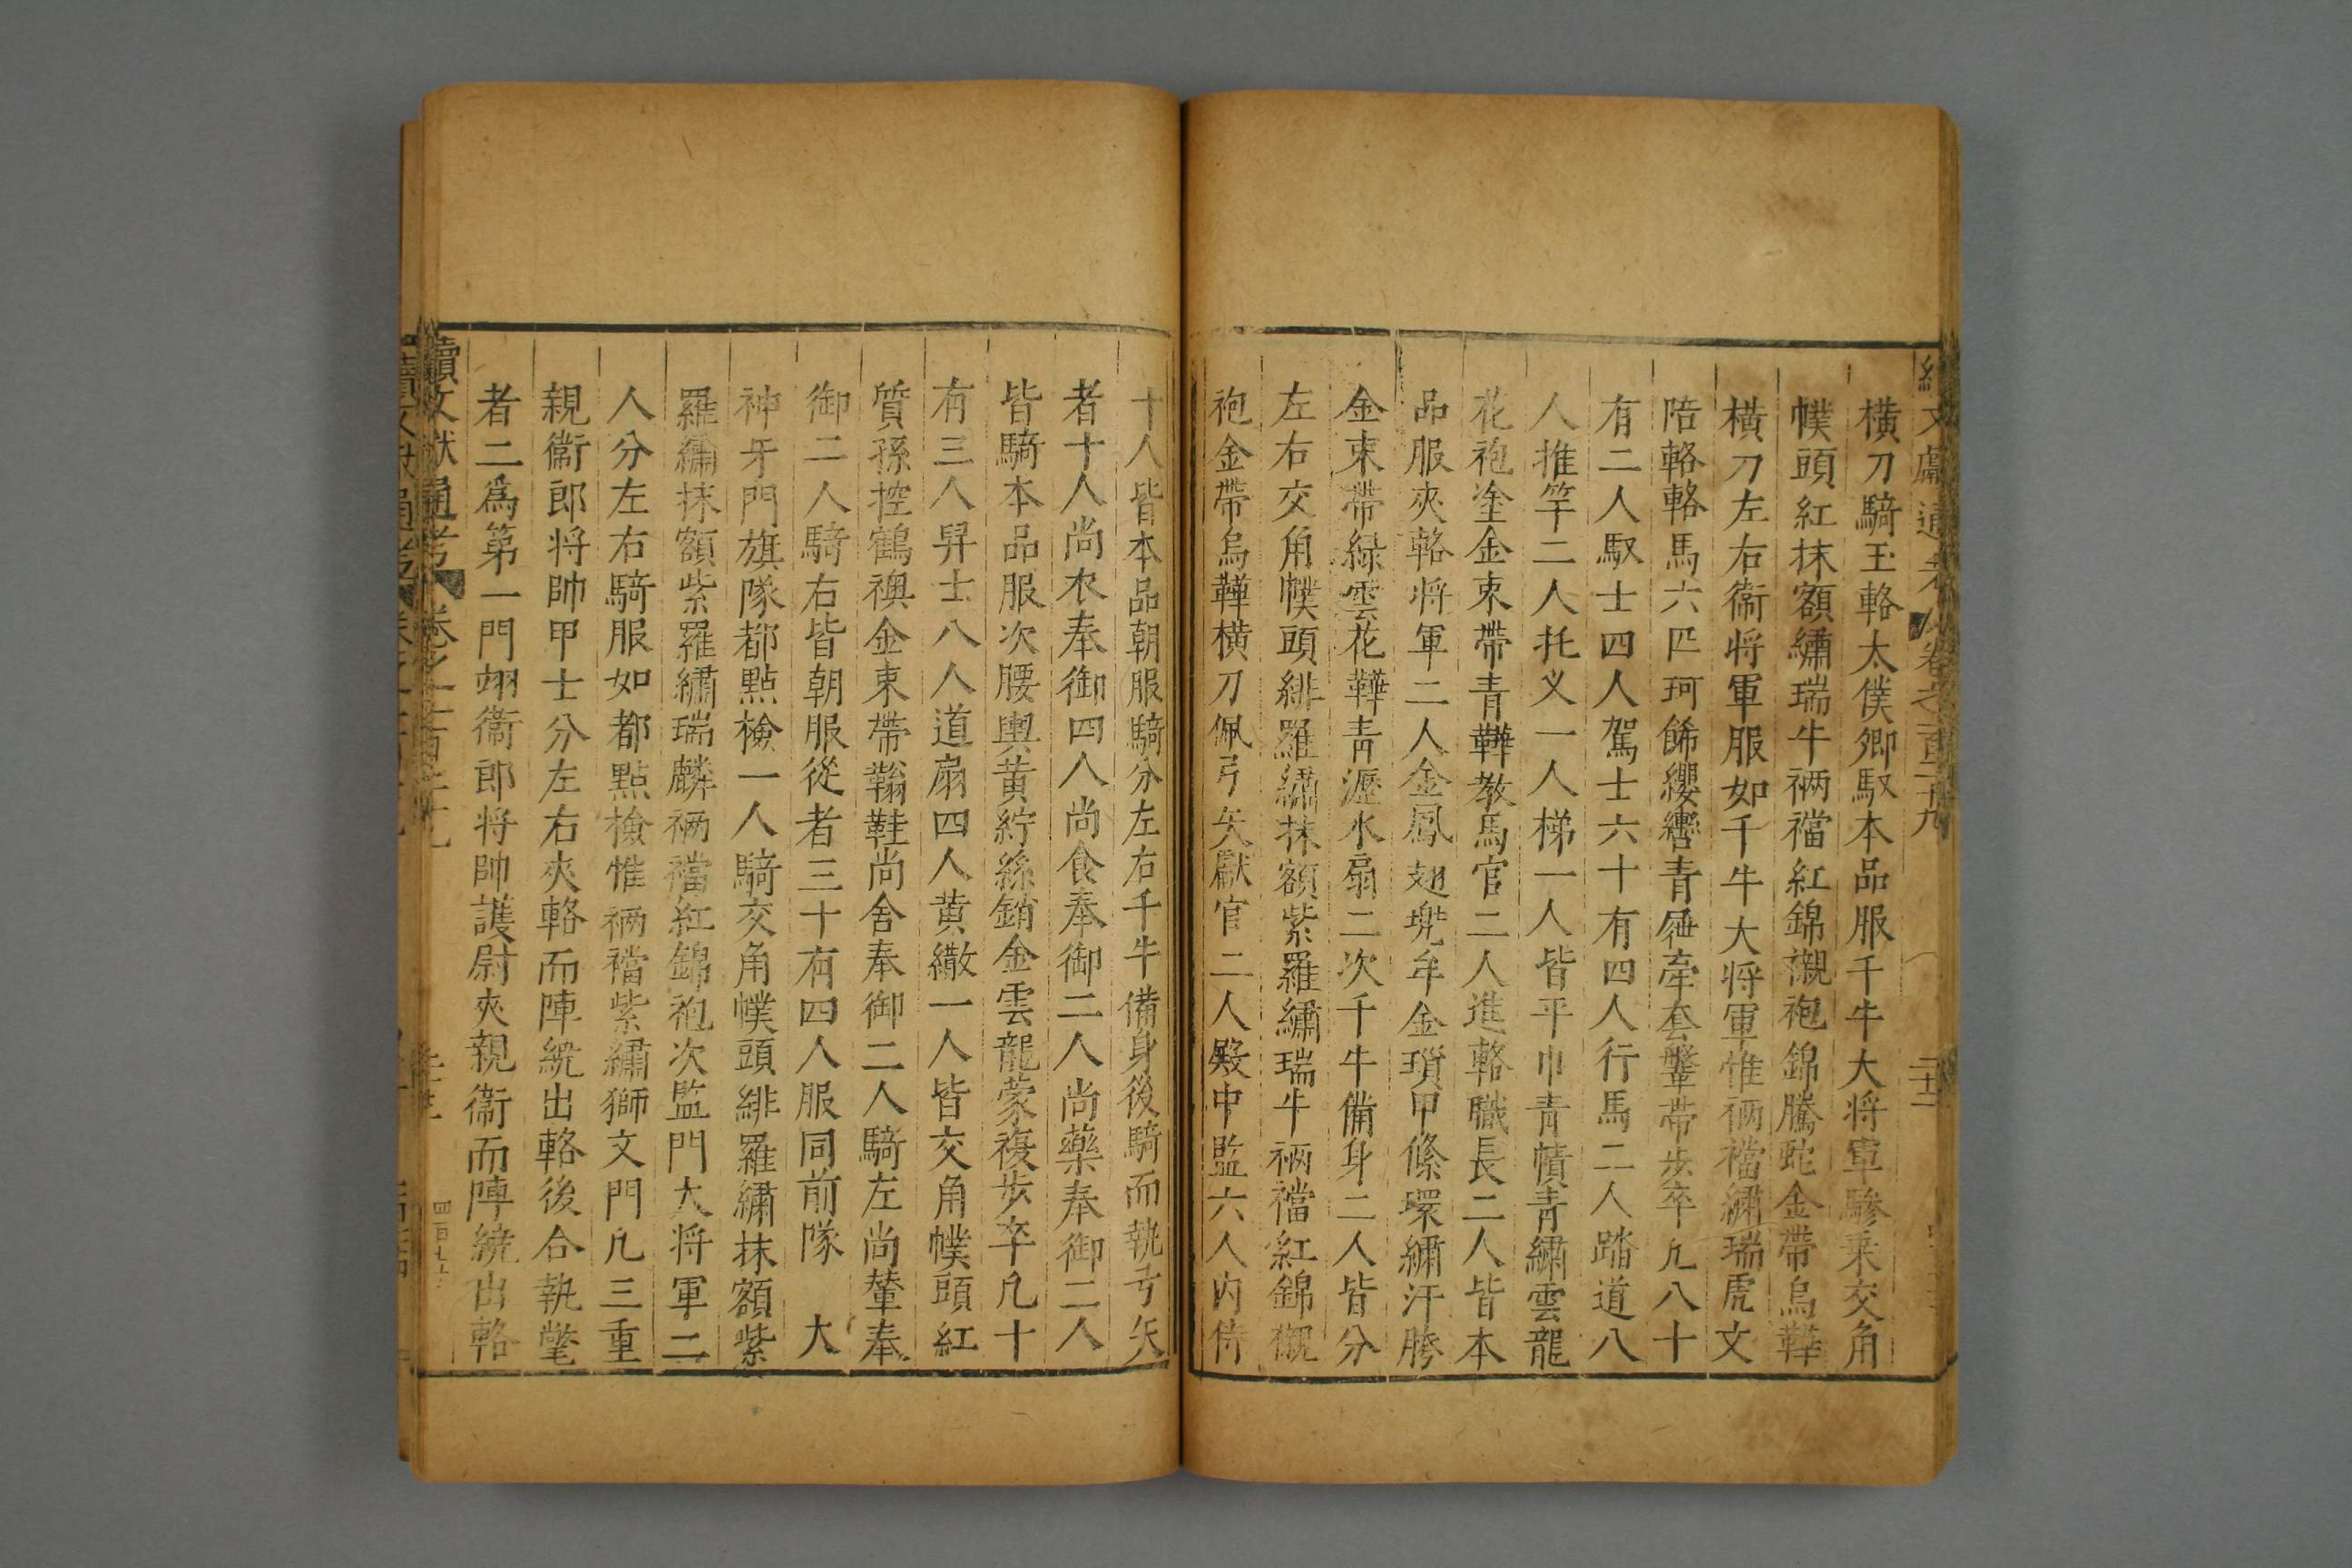 文獻通考 卷之一百二十九
橫刀騎玉輅太僕卿馭本品服千牛大将軍驂乗交角
幞頭紅抹額繡瑞牛裲襠紅錦襯袍錦騰蛇金帶烏鞾
橫刀左右衞将軍服如千牛大将軍惟裲襠繡瑞虎文
陪輅輅馬六匹珂餙纓轡青屜牽套鞶帶步卒凢八十
有二人馭士四人駕士六十有四人行馬二人踏道八
人推竿二人托义一人梯一人皆平巾青幘青繡雲龍
花袍塗金束帶青鞾教馬官二人進輅職長二人皆本
品服夾輅将軍二人金鳳翅兠牟金瑣甲絛環繡汗胯
金束帶緑雲花鞾青瀝水扇二次千牛備身二人皆分
左右交角幞頭緋羅繡抹額紫羅繡瑞牛裲襠紅錦襯
袍金帶烏鞾橫刀佩弓矢獻官二人殿中監六人内侍
十人皆本品朝服騎分左右千牛備身後騎而執弓矢
者十人尚衣奉御四人尚食奉御二人尚藥奉御二人
皆騎本品服次腰輿黄紵絲銷金雲龍蒙複步卒凢十
有三人舁士八人道扇四人黄繖一人皆交角幞頭紅
質孫控鶴襖金束帶鞝鞋尚舍奉御二人騎左尚輦奉
御二人騎右皆朝服從者三十有四人服同前隊 大
神牙門旗隊都㸃檢一人騎交角幞頭緋羅繡抹額紫
羅繡抹額紫羅繡瑞麟裲襠紅錦袍次監門大将軍二
人分左右騎服如都㸃檢惟裲襠紫繡獅文門凢三重
親衞郎将帥甲士分左右夾輅而陣繞出輅後合執氅
者二爲第一門翊衞郎将帥護尉夾親衞而陣繞出輅
續文獻通考 卷之一百二十九